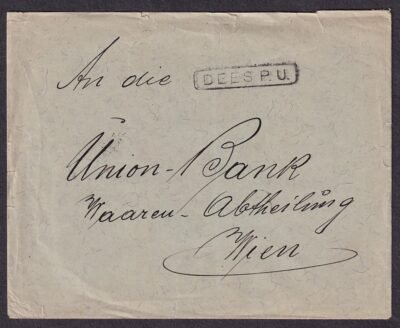 An die
DEES P. U.
Union-Bank
Waaren-Abtheilung
Wien